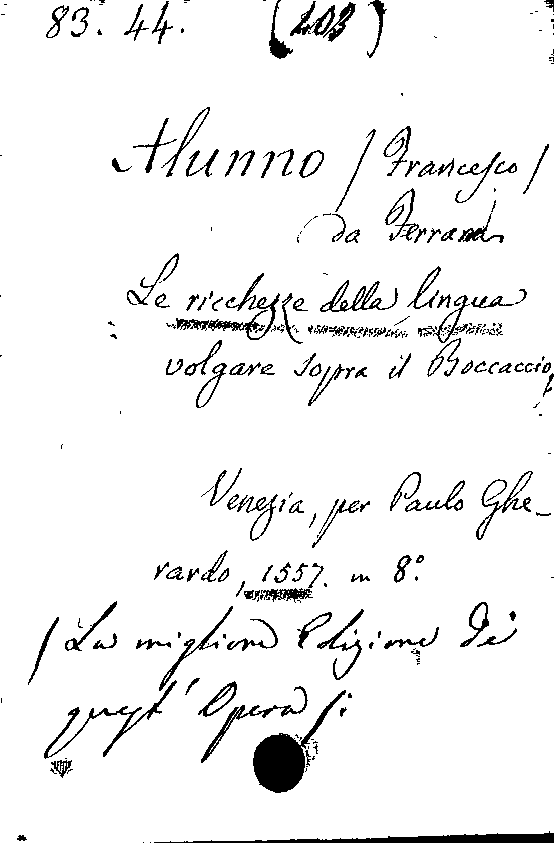 83. 44. (203)
Alunno / Francesco /
da Ferrara.
Le ricchezze della lingua
volgare sopra il Boccaccio,
Venezia, per Paulo Ghe-
rardo, 1557. in 8.°
/ La migliore Edizione di
quest' Opera /: